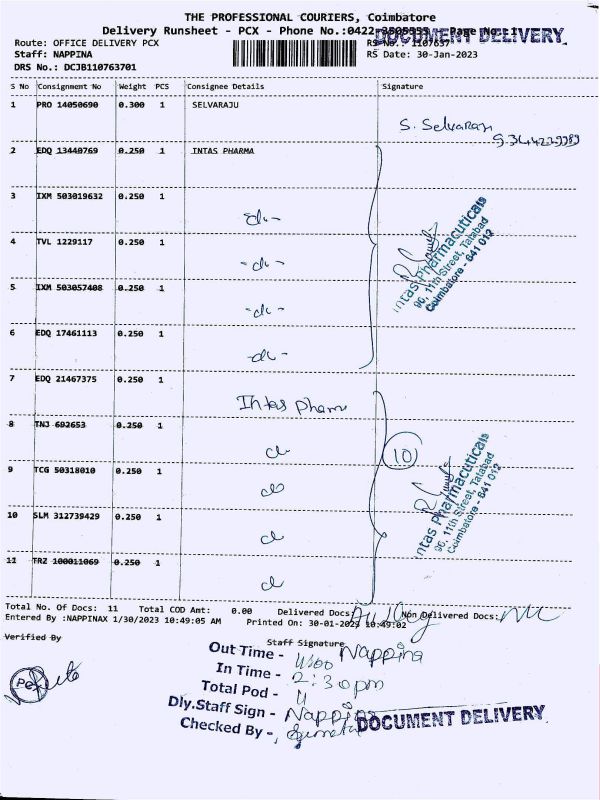 THE PROFESSIONAL COURIERS, Coimbatore
Delivery Runsheet - PCX - Phone No.:0422- Page No.:1
DOCUMENT DELIVERY
Route: OFFICE DELIVERY PCX RS No.: 1107637
Staff: NAPPINA RS Date: 30-Jan-2023
DRS No.: DCJB110763701
S No Consignment No Weight PCS Consignee Details Signature
1 PRO 14050690 0.300 1 SELVARAJU
S. Selvaraj
2 EDQ 13440769 0.250 1 INTAS PHARMA
3 IXM 503019632 0.250 1 -do-
4 TVL 1229117 0.250 1 -do-
Intas Pharmaceuticals
96, 11th Street, Tatabad
Coimbatore - 641 012
5 IXM 503057408 0.250 1 -do-
6 EDQ 17461113 0.250 1 -do-
7 EDQ 21467375 0.250 1 Intas Pharma
8 TNJ 692653 0.250 1 do
10
9 TCG 50318010 0.250 1 do
Intas Pharmaceuticals
96, 11th Street, Tatabad
Coimbatore - 641 012
10 SLM 312739429 0.250 1 do
11 TRZ 100011069 0.250 1 do
Total No. Of Docs: 11 Total COD Amt: 0.00 Delivered Docs: Non Delivered Docs: Nil
Entered By :NAPPINAX 1/30/2023 10:49:05 AM Printed On: 30-01-2023 10:49:02
Verified By Staff Signature
PCX
Out Time - Nappina
In Time - 2:30pm
Total Pod - 11
Dly.Staff Sign - Nappina
Checked By -
DOCUMENT DELIVERY